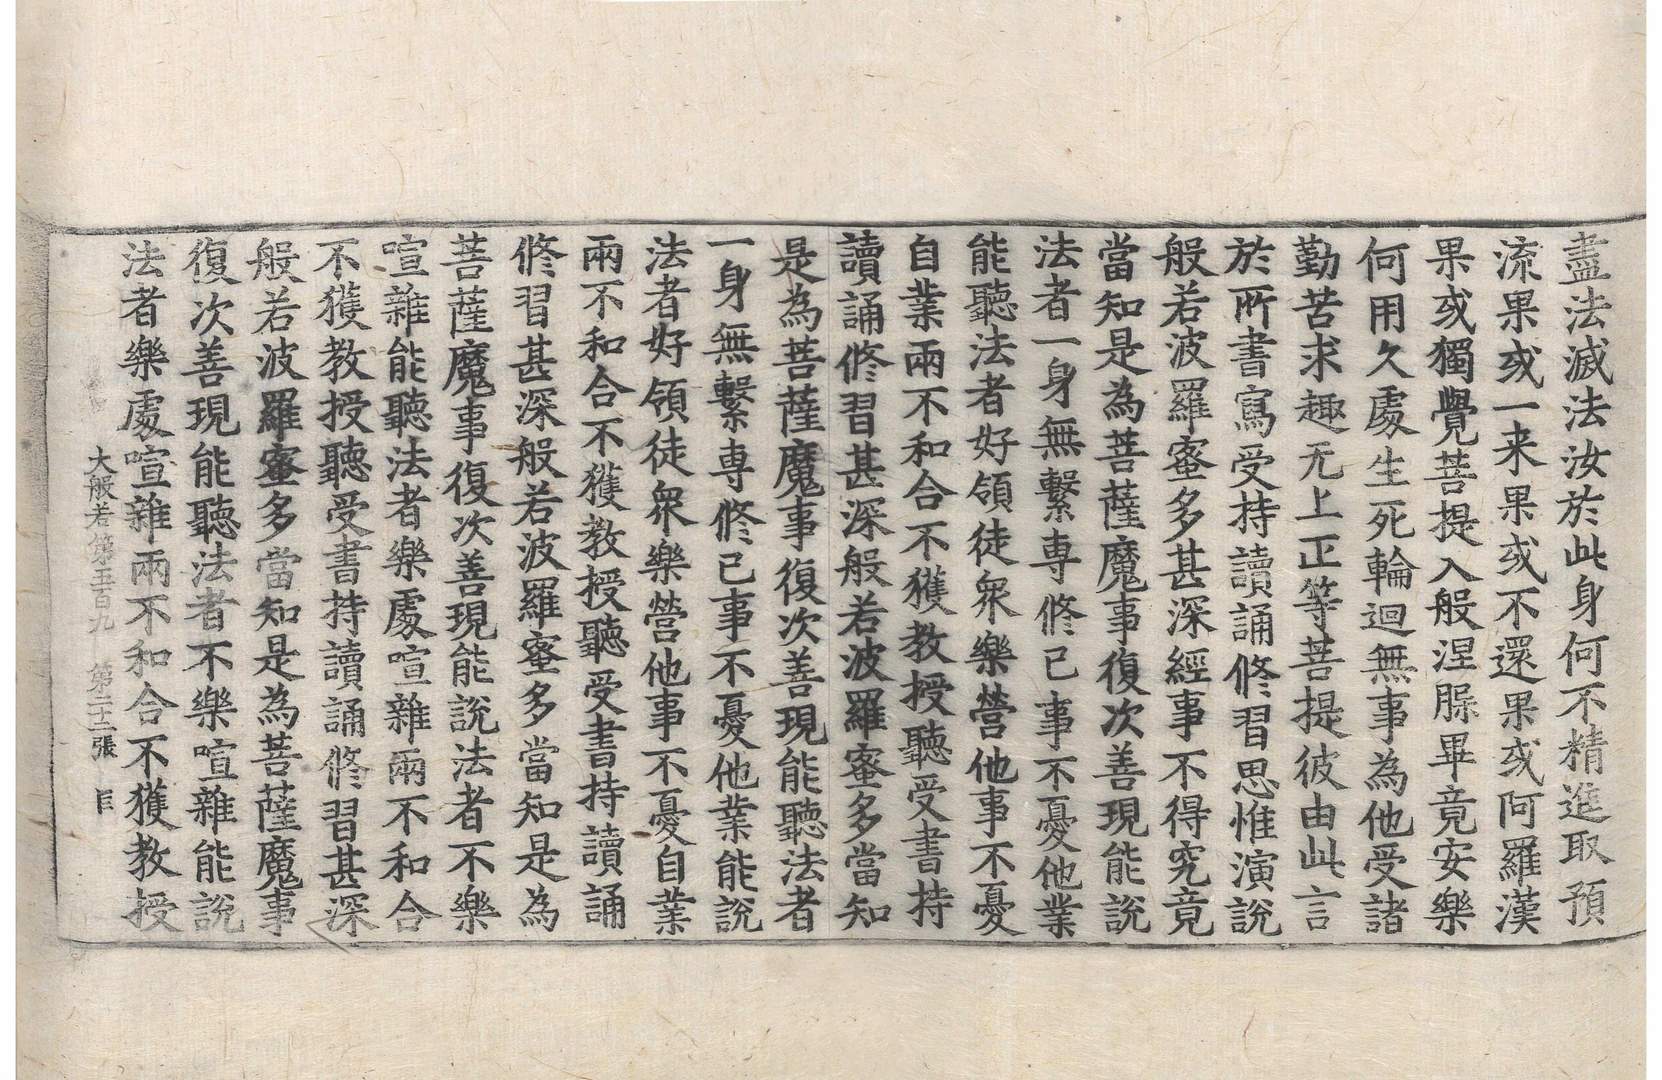 盡法滅法汝於此身何不精進取預
流果或一来果或不還果或阿羅漢
果或獨覺菩提入般涅槃畢竟安樂
何用久處生死輪迴無事為他受諸
勤苦求趣无上正等菩提彼由此言
於所書寫受持讀誦修習思惟演說
般若波羅蜜多甚深經事不得究竟
當知是為菩薩魔事復次善現能說
法者一身無繫專修己事不憂他業
能聽法者好領徒衆樂營他事不憂
自業兩不和合不獲教授聽受書持
讀誦修習甚深般若波羅蜜多當知
是為菩薩魔事復次善現能聽法者
一身無繫專修己事不憂他業能說
法者好領徒衆樂營他事不憂自業
兩不和合不獲教授聽受書持讀誦
修習甚深般若波羅蜜多當知是為
菩薩魔事復次善現能說法者不樂
喧雜能聽法者樂處喧雜兩不和合
不獲教授聽受書持讀誦修習甚深
般若波羅蜜多當知是為菩薩魔事
復次善現能聽法者不樂喧雜能說
法者樂處喧雜兩不和合不獲教授
大般若第五百九 第二十二張